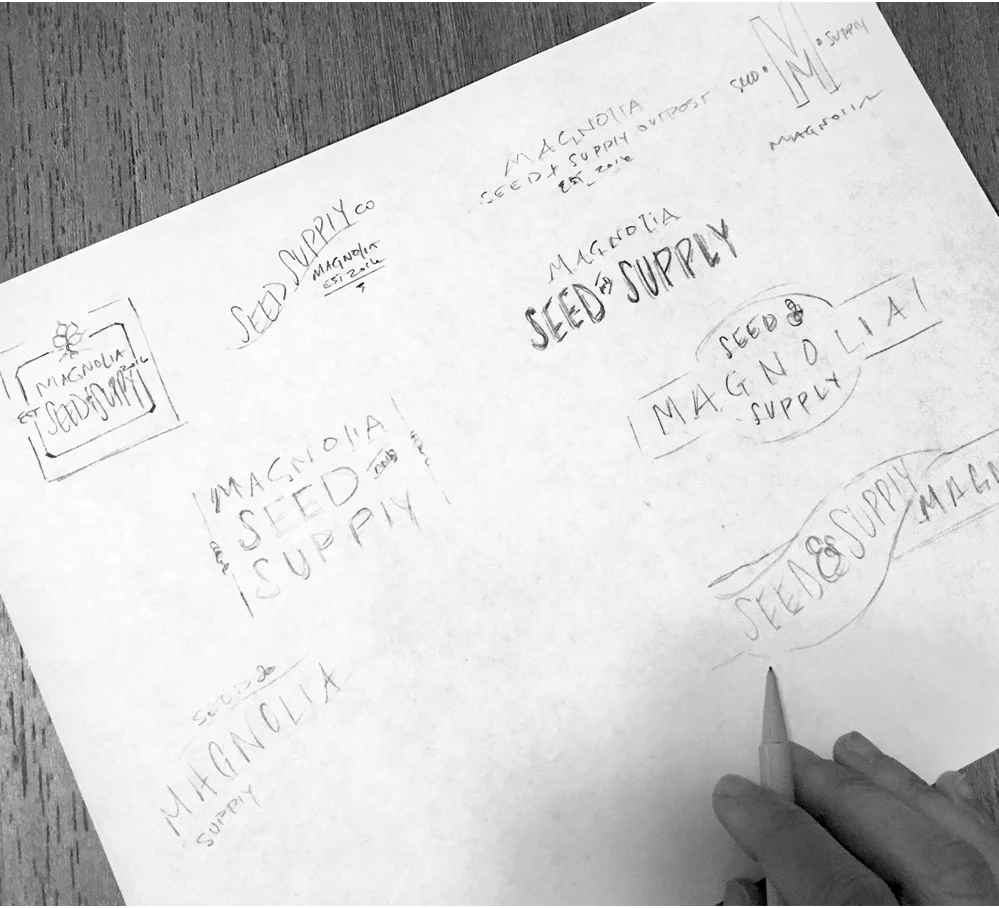 M
SEED • • SUPPLY
MAGNOLIA
MAGNOLIA
SEED & SUPPLY OUTPOST
EST. 2016
SEED SUPPLY CO
MAGNOLIA
EST 2016
MAGNOLIA
SEED AND SUPPLY
MAGNOLIA
EST 2016
SEED & SUPPLY
SEED &
MAGNOLIA
SUPPLY
MAGNOLIA
SEED AND
SUPPLY
SEED & SUPPLY
MAGN
SEED &
MAGNOLIA
SUPPLY